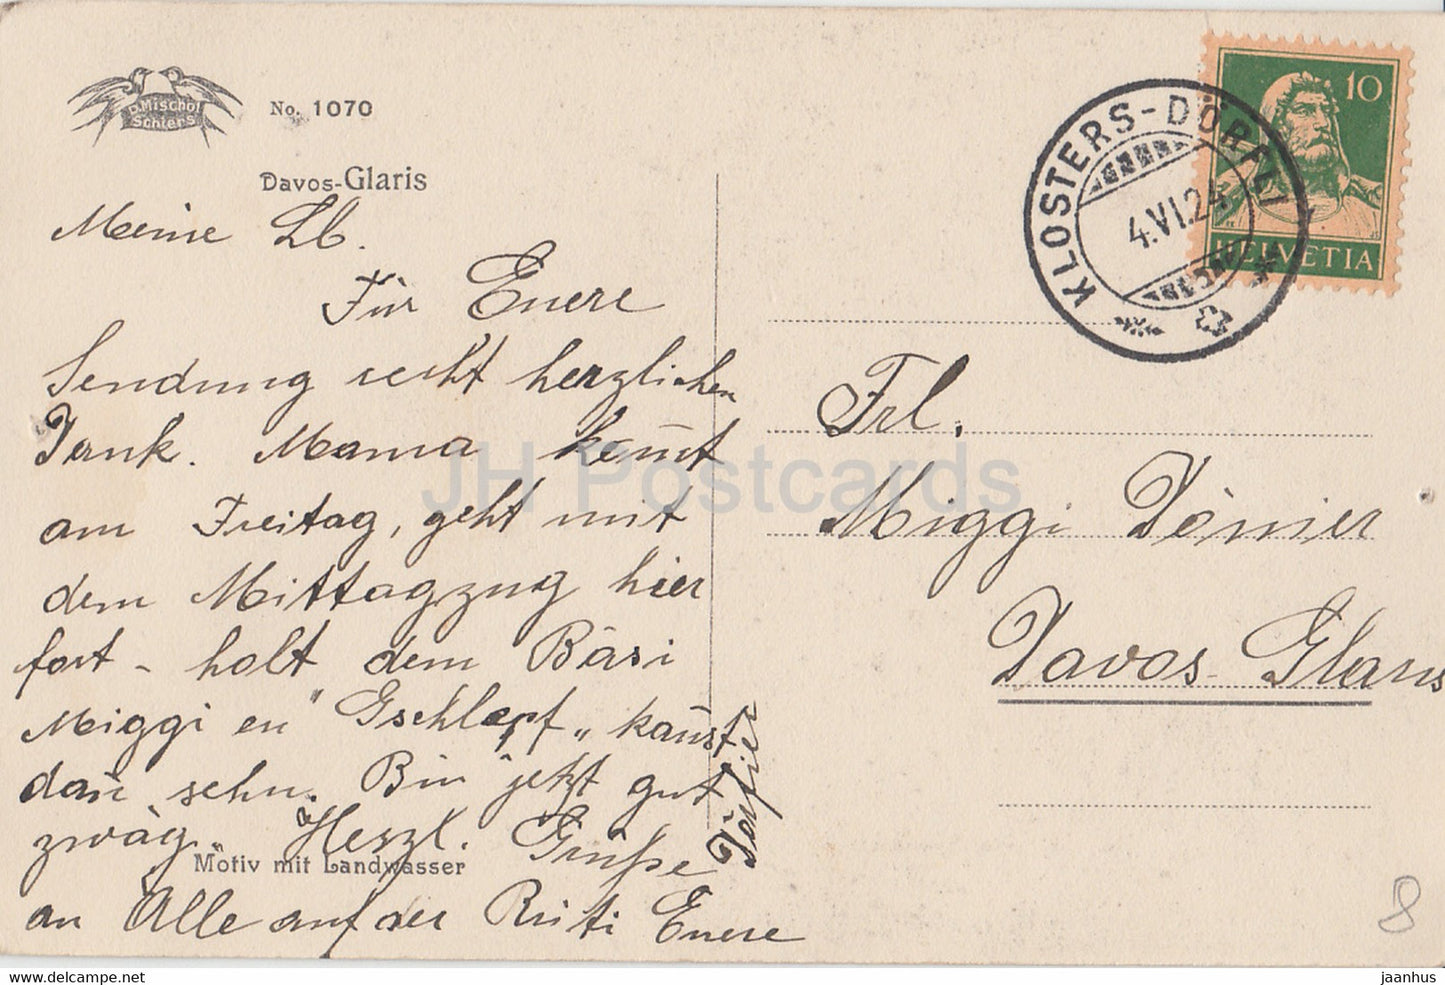 D. Mischol
Schiers
No. 1070
Davos-Glaris
Meine Lb.
Für Euere
Sendung recht herzlichen
Dank. Mama kom̄t
am Freitag, geht mit
dem Mittagzug hier
fort - holt dem Bäsi
Miggi en "Gschlepf" kan̄st
dan̄ sehn. Bin jetzt gut
zwäg. Herzl. Grüße
an Alle auf der Rüti Euere
Motiv mit Landwasser
KLOSTERS-DÖRFLI
4.VI.24
10
HELVETIA
Frl.
Miggi
Davos-Glaris
8
JH Postcards
www.delcampe.net
jaanhus